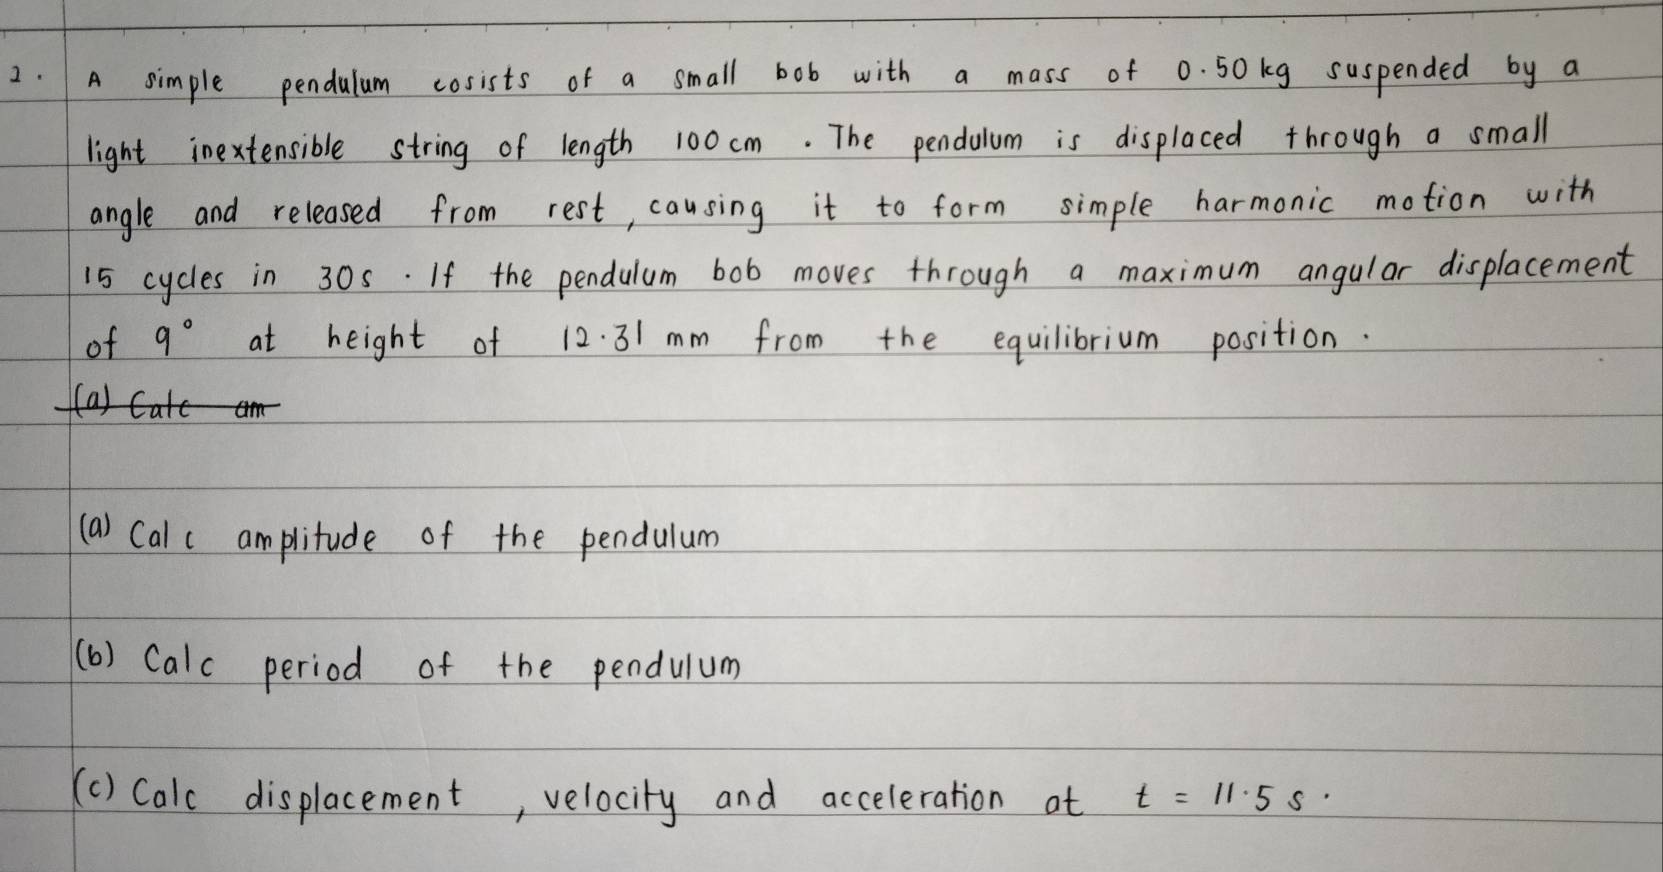 2. A simple pendulum cosists of a small bob with a mass of 0.50 kg suspended by a
light inextensible string of length 100 cm. The pendulum is displaced through a small
angle and released from rest, causing it to form simple harmonic motion with
15 cycles in 30s. If the pendulum bob moves through a maximum angular displacement
of 9° at height of 12.31 mm from the equilibrium position.
(a) Calc am
(a) Calc amplitude of the pendulum
(b) Calc period of the pendulum
(c) Calc displacement, velocity and acceleration at t = 11.5 s.